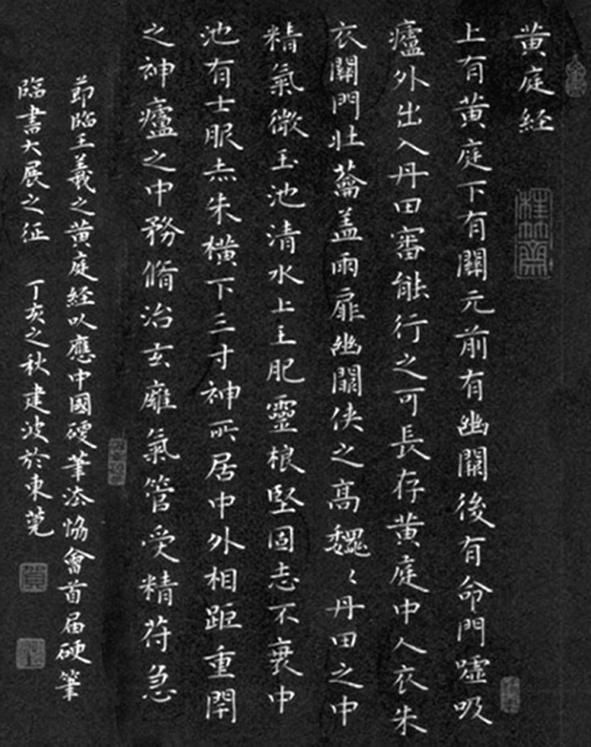 黄庭経
上有黄庭下有關元前有幽闕後有命門嘘吸
廬外出入丹田審能行之可長存黄庭中人衣朱
衣關門壯蘥盖兩扉幽闕侠之高魏〻丹田之中
精氣微玉池清水上生肥靈根堅固志不衰中
池有士服赤朱横下三寸神所居中外相距重閇
之神廬之中務脩治玄廱氣管受精苻急
節臨王羲之黄庭經以應中國硬筆法協會首届硬筆
臨書大展之征 丁亥之秋建波於東莞